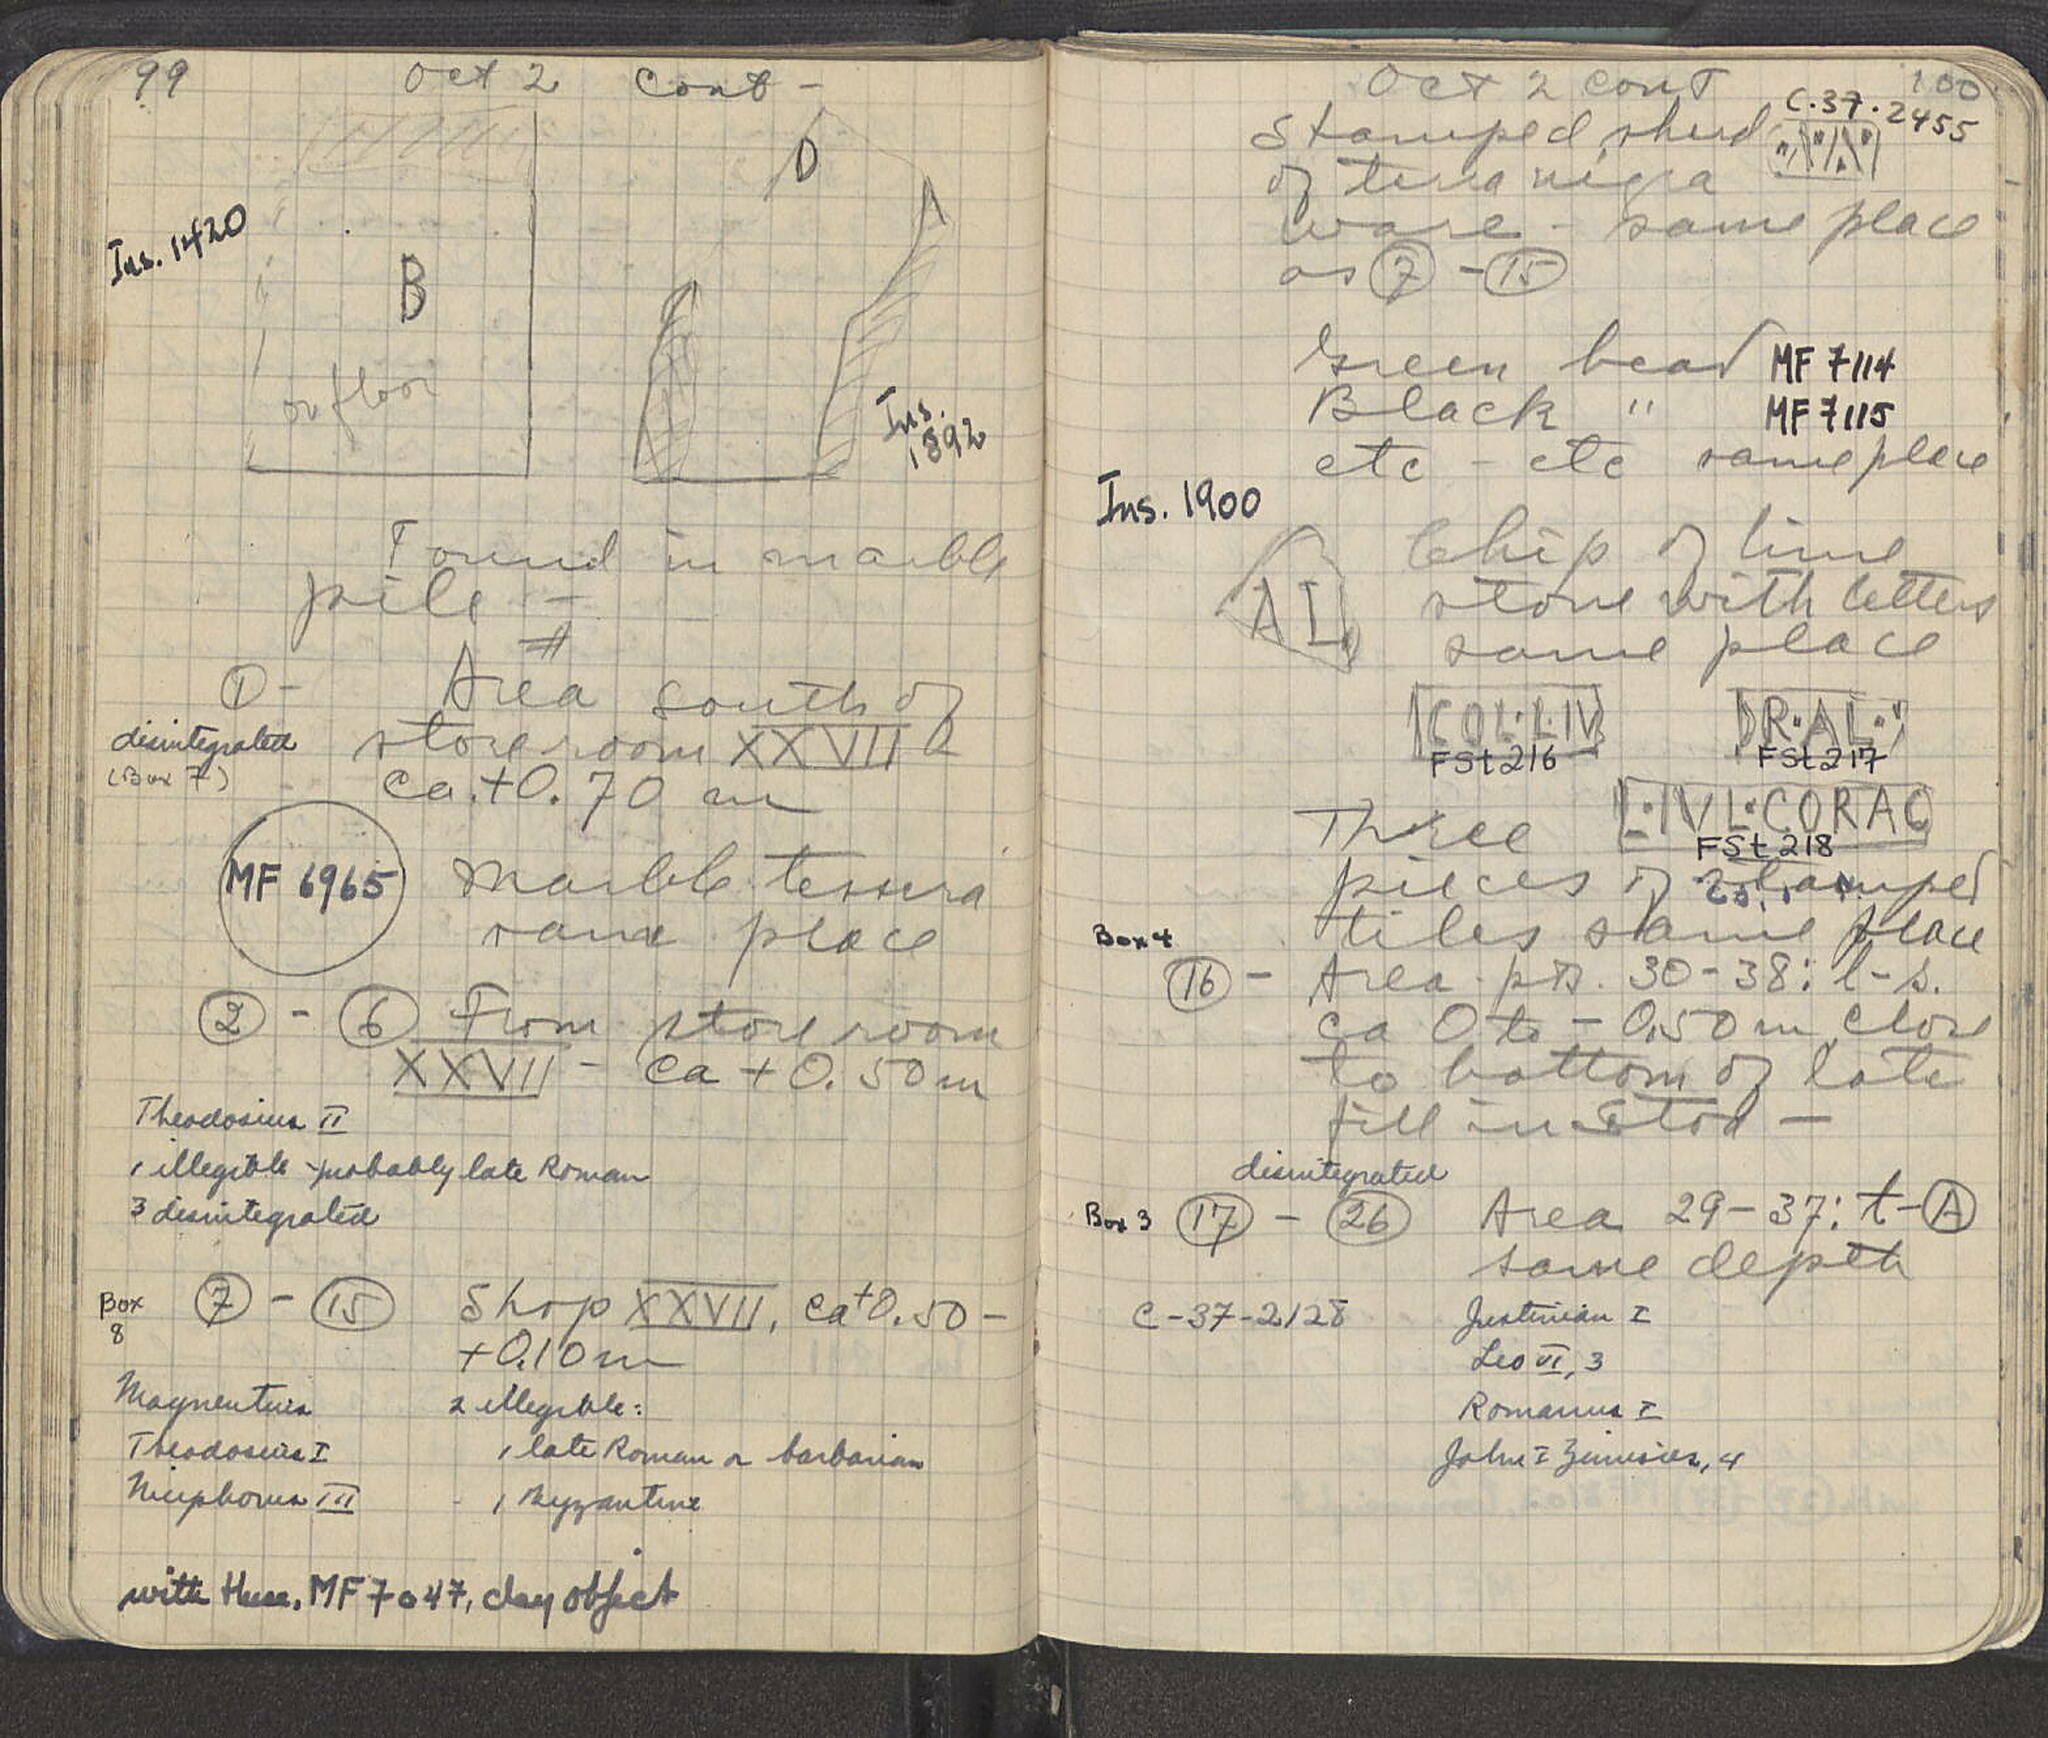 99 Oct 2 Cont -
D
A
Ins. 1420
B
on floor
Ins.
1892
Found in marble
pile -
#
① - Area south of
disintegrated storeroom XXVII
(Box 7) ca. +0.70 m
MF 6965 Marble tessera
same place
② - ⑥ From storeroom
XXVII - ca +0.50m
Theodosius II
1 illegible - probably late Roman
3 disintegrated
Box 8 ⑦ - ⑮ Shop XXVII, ca +0.50 -
+0.10m
Magnentius 2 illegible:
Theodosius I 1 late Roman or barbarian
Nicephorus III - 1 Byzantine
with these, MF 7047, clay object
Oct 2 cont 100
C.37.2455
Stamped sherd
of terra nigra
ware - same place
as ⑦ - ⑮
Green bead MF 7114
Black " MF 7115
etc - etc same place
Ins. 1900
AL
Chip of lime
stone with letters
same place
COL·L·IV DR·AL·
FSt 216 FSt 217
L·IVL·CORAC
FSt 218
Three
pieces of stamped
tiles same place
Box 4
⑯ - Area pts. 30-38: l-s.
ca 0 to -0.50m close
to bottom of late
fill in Stoa -
disintegrated
Box 3 ⑰ - ㉖ Area 29-37: t-Ⓐ
same depth
C-37-2128 Justinian I
Leo VI, 3
Romanus I
John I Zimisces, 4